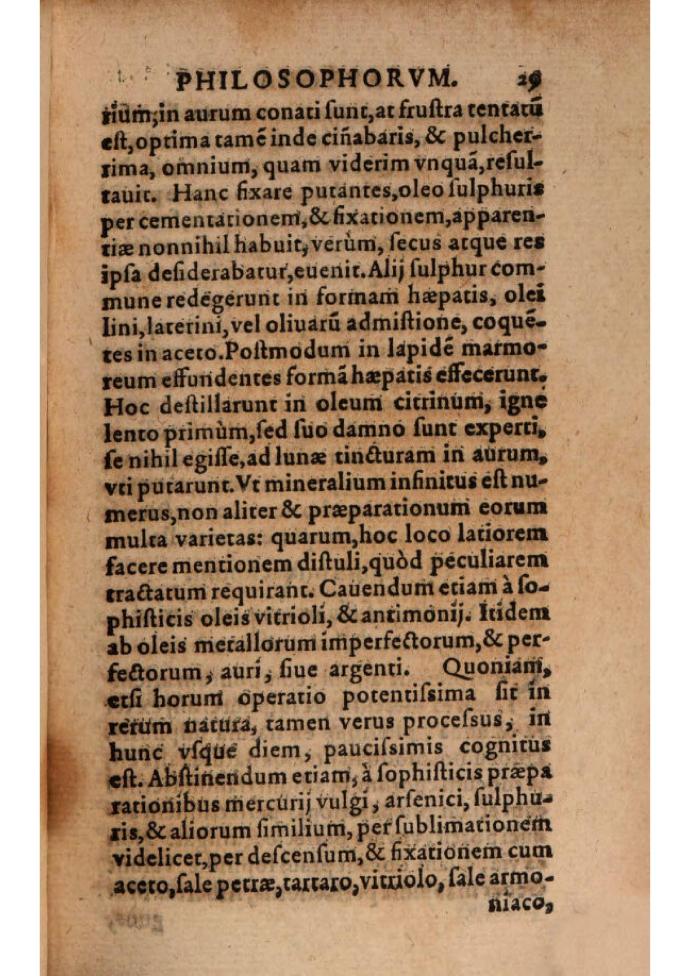 PHILOSOPHORVM. 29
rium, in aurum conati ſunt, at fruſtra tentatū
eſt, optima tamē inde ciñabaris, & pulcher-
rima, omnium, quam viderim vnquā, reſul-
tauit. Hanc fixare putantes, oleo ſulphuris
per cementationem, & fixationem, apparen-
tiæ nonnihil habuit, verùm, ſecus atque res
ipſa deſiderabatur, euenit. Alij ſulphur com-
mune redegerunt in formam hæpatis, olei
lini, laterini, vel oliuarū admiſtione, coquē-
tes in aceto. Poſtmodum in lapidē marmo-
reum effundentes formā hæpatis effecerunt.
Hoc deſtillarunt in oleum citrinum, igne
lento primùm, ſed ſuo damno ſunt experti,
ſe nihil egiſſe, ad lunæ tincturam in aurum,
vti putarunt. Vt mineralium infinitus eſt nu-
merus, non aliter & præparationum eorum
multa varietas: quarum, hoc loco latiorem
facere mentionem diſtuli, quòd peculiarem
tractatum requirant. Cauendum etiam à ſo-
phiſticis oleis vitrioli, & antimonij. Itidem
ab oleis metallorum imperfectorum, & per-
fectorum, auri, ſiue argenti. Quoniam,
etſi horum operatio potentiſsima ſit in
rerum natura, tamen verus proceſsus, in
hunc vſque diem, pauciſsimis cognitus
eſt. Abſtinendum etiam, à ſophiſticis præpa
rationibus mercurij vulgi, arſenici, ſulphu-
ris, & aliorum ſimilium, per ſublimationem
videlicet, per deſcenſum, & fixationem cum
aceto, ſale petræ, tartaro, vitriolo, ſale armo-
niaco,